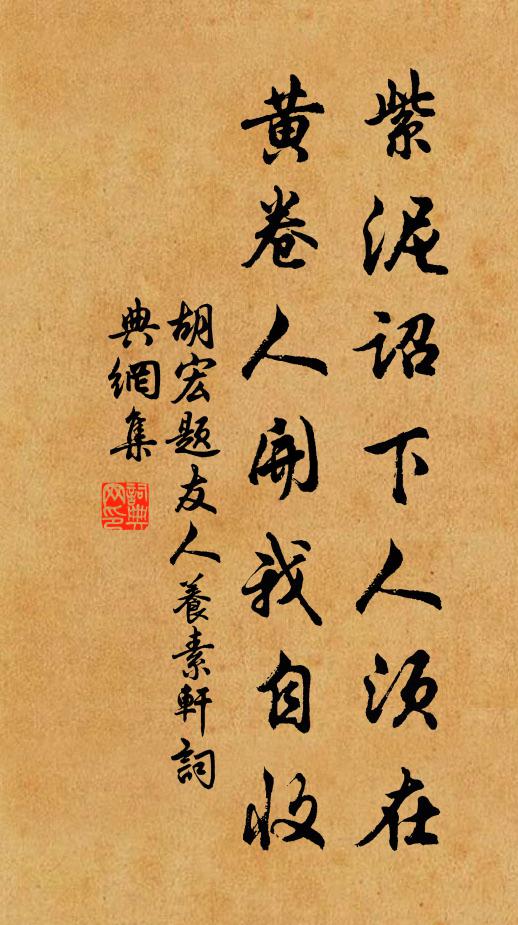 紫泥诏下人须在
黄卷人開我自收
胡宏题友人養素軒詞
典網集
詞典
网印